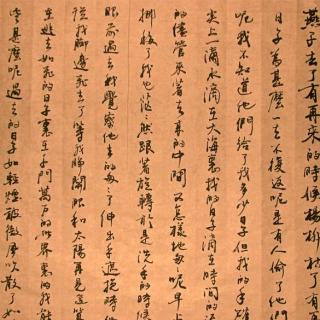 燕子去了有再來的時候楊柳枯了有再
日子為甚麼一去不復返呢是有人偷了他們
呢我不知道他們給了我多少日子但我的手確
尖上一滴水滴在大海裏我的日子滴在時間的
的儘管來着去來的中間又怎樣地匆匆呢早上
挪移了我也茫茫然跟着旋轉於是洗手的時候
眼前過去我覺察他去的匆匆了伸出手遮挽時
從我腳邊飛去了等我睜開眼和太陽再見這算
在逃去如飛的日子裏在千門萬戶的世界裏的我能
些甚麼呢過去的日子如輕煙被微風吹散了如